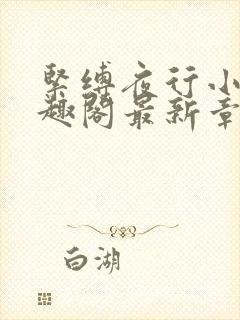 緊縛夜行小
趣閣最新章
白湖